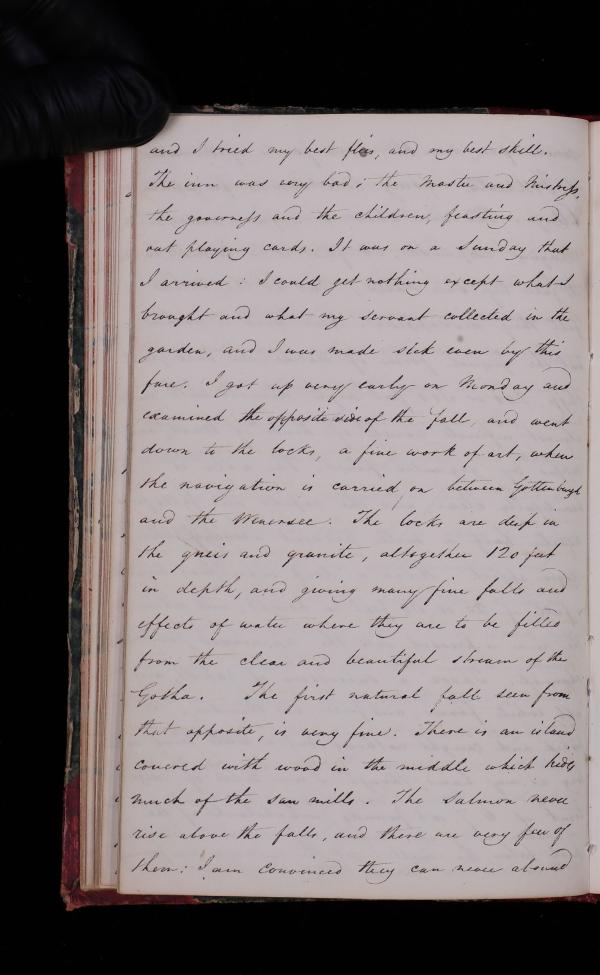 and I tried my best flies, and my best skill.
The inn was very bad; the Master and Mistress,
the governess and the children, feasting and
out playing cards. It was on a Sunday that
I arrived: I could get nothing except what I
brought and what my servant collected in the
garden, and I was made sick even by this
fare. I got up very early on Monday and
examined the opposite side of the fall, and went
down to the locks, a fine work of art, when
the navigation is carried on between Gottenburgh
and the Wenersee. The locks are deep in
the gneis and granite, altogether 120 feet
in depth, and giving many fine falls and
effects of water where they are to be filled
from the clear and beautiful stream of the
Gotha. The first natural fall seen from
that opposite, is very fine. There is an island
covered with wood in the middle which hides
much of the saw mills. The Salmon never
rise above the falls, and there are very few of
them: I am convinced they can never abound